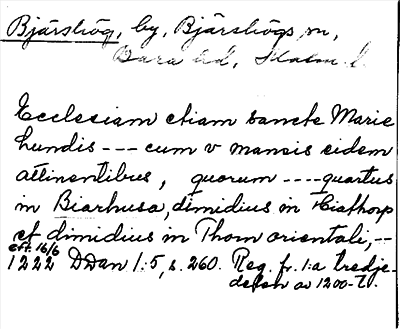 Bjärshög, by, Bjärshögs sn,
Bara hd, Malm. l.
Ecclesiam etiam sancte Marie
Lundis --- cum v mansis eidem
attinentibus, quorum ---- quartus
in Biarhusa, dimidius in Hiathorp
et dimidius in Thom orientali, --
eft. 16/6
1222 DDan 1:5, s. 260. Reg. fr. 1:a tredje-
delen av 1200-t.